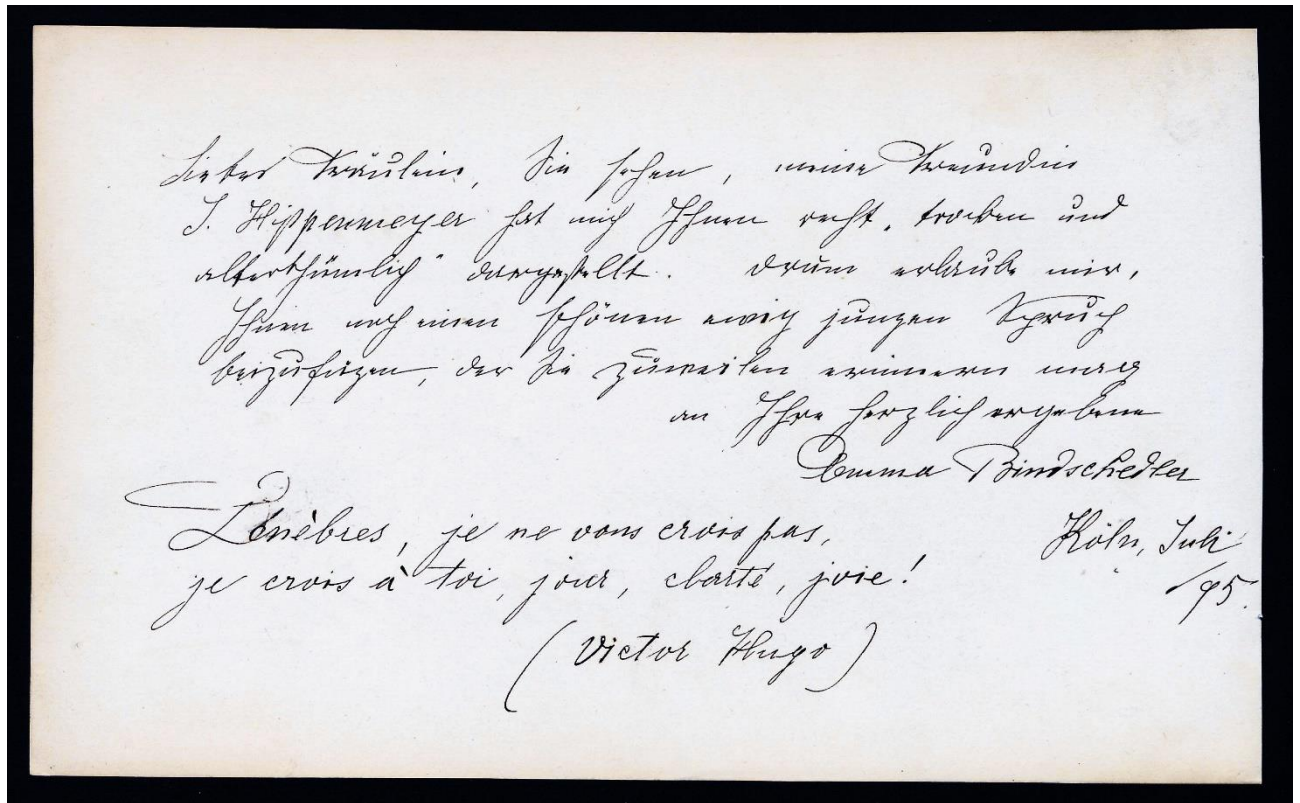 Liebes Fräulein, Sie sehen, meine Freundin
J. Hippenmeyer hat mich Ihnen recht „trocken und
alterthümlich" dargestellt. Drum erlaube mir,
Ihnen noch einen schönen ewig jungen Spruch
beizufügen, der Sie zuweilen erinnern mag
an Ihre herzlich ergebene
Emma Bindschedler
Ténèbres, je ne vous crois pas,
Köln, Juli
je crois à toi, jour, clarté, joie!
/95.
(Victor Hugo)